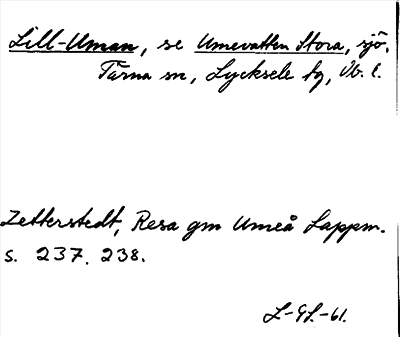 Lill-Uman, se Umevatten Stora, sjö.
Tärna sn, Lycksele tg, Vb. l.
Zetterstedt, Resa gm Umeå Lappm.
s. 237. 238.